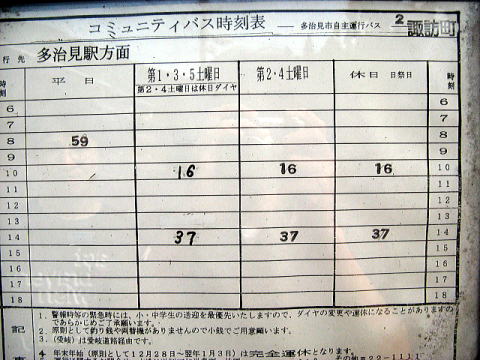 コミュニティバス時刻表 ── 多治見市自主運行バス 2 諏訪町
行先 多治見駅方面
時刻 平日 第1・3・5土曜日 第2・4土曜日 休日 日祭日 時刻
第2・4土曜日は休日ダイヤ
6 6
7 7
8 59 8
9 9
10 16 16 16 10
11 11
12 12
13 13
14 37 37 37 14
15 15
16 16
17 17
18 18
記
1. 警報時等の緊急時には、小・中学生の送迎を最優先いたしますので、ダイヤの変更や運休になることがありますの
であらかじめご了承願います。
2. 原則として釣り銭や両替機がありませんので小銭でご用意願います。
3. (愛岐)は愛岐道路経由です。
4 年末年始(原則として12月28日~翌年1月3日)は完全運休となります。
その他 22-1111